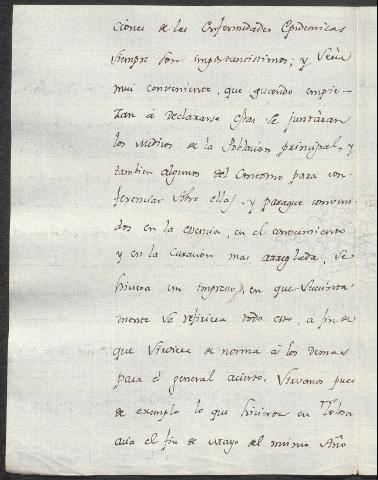 ciones de las Enfermedades Epidemicas
siempre son importantissimos; y seria
mui conveniente, que quando empie-
zan á declararse estas se juntaran
los Medicos de la Poblacion principal, y
tambien algunos del Contorno para con-
ferenciar sobre ellas, y paraque conveni-
dos en la essencia, en el conocimiento
y en la Curacion mas arreglada, se
hiciera un impreso, en que sucinta-
mente se refiriera todo esto, a fin de
que sirviera de norma á los demas
para el general acierto. Sirvanos pues
de exemplo lo que hicieron en Tolosa
acia el fin de Mayo del mismo Año